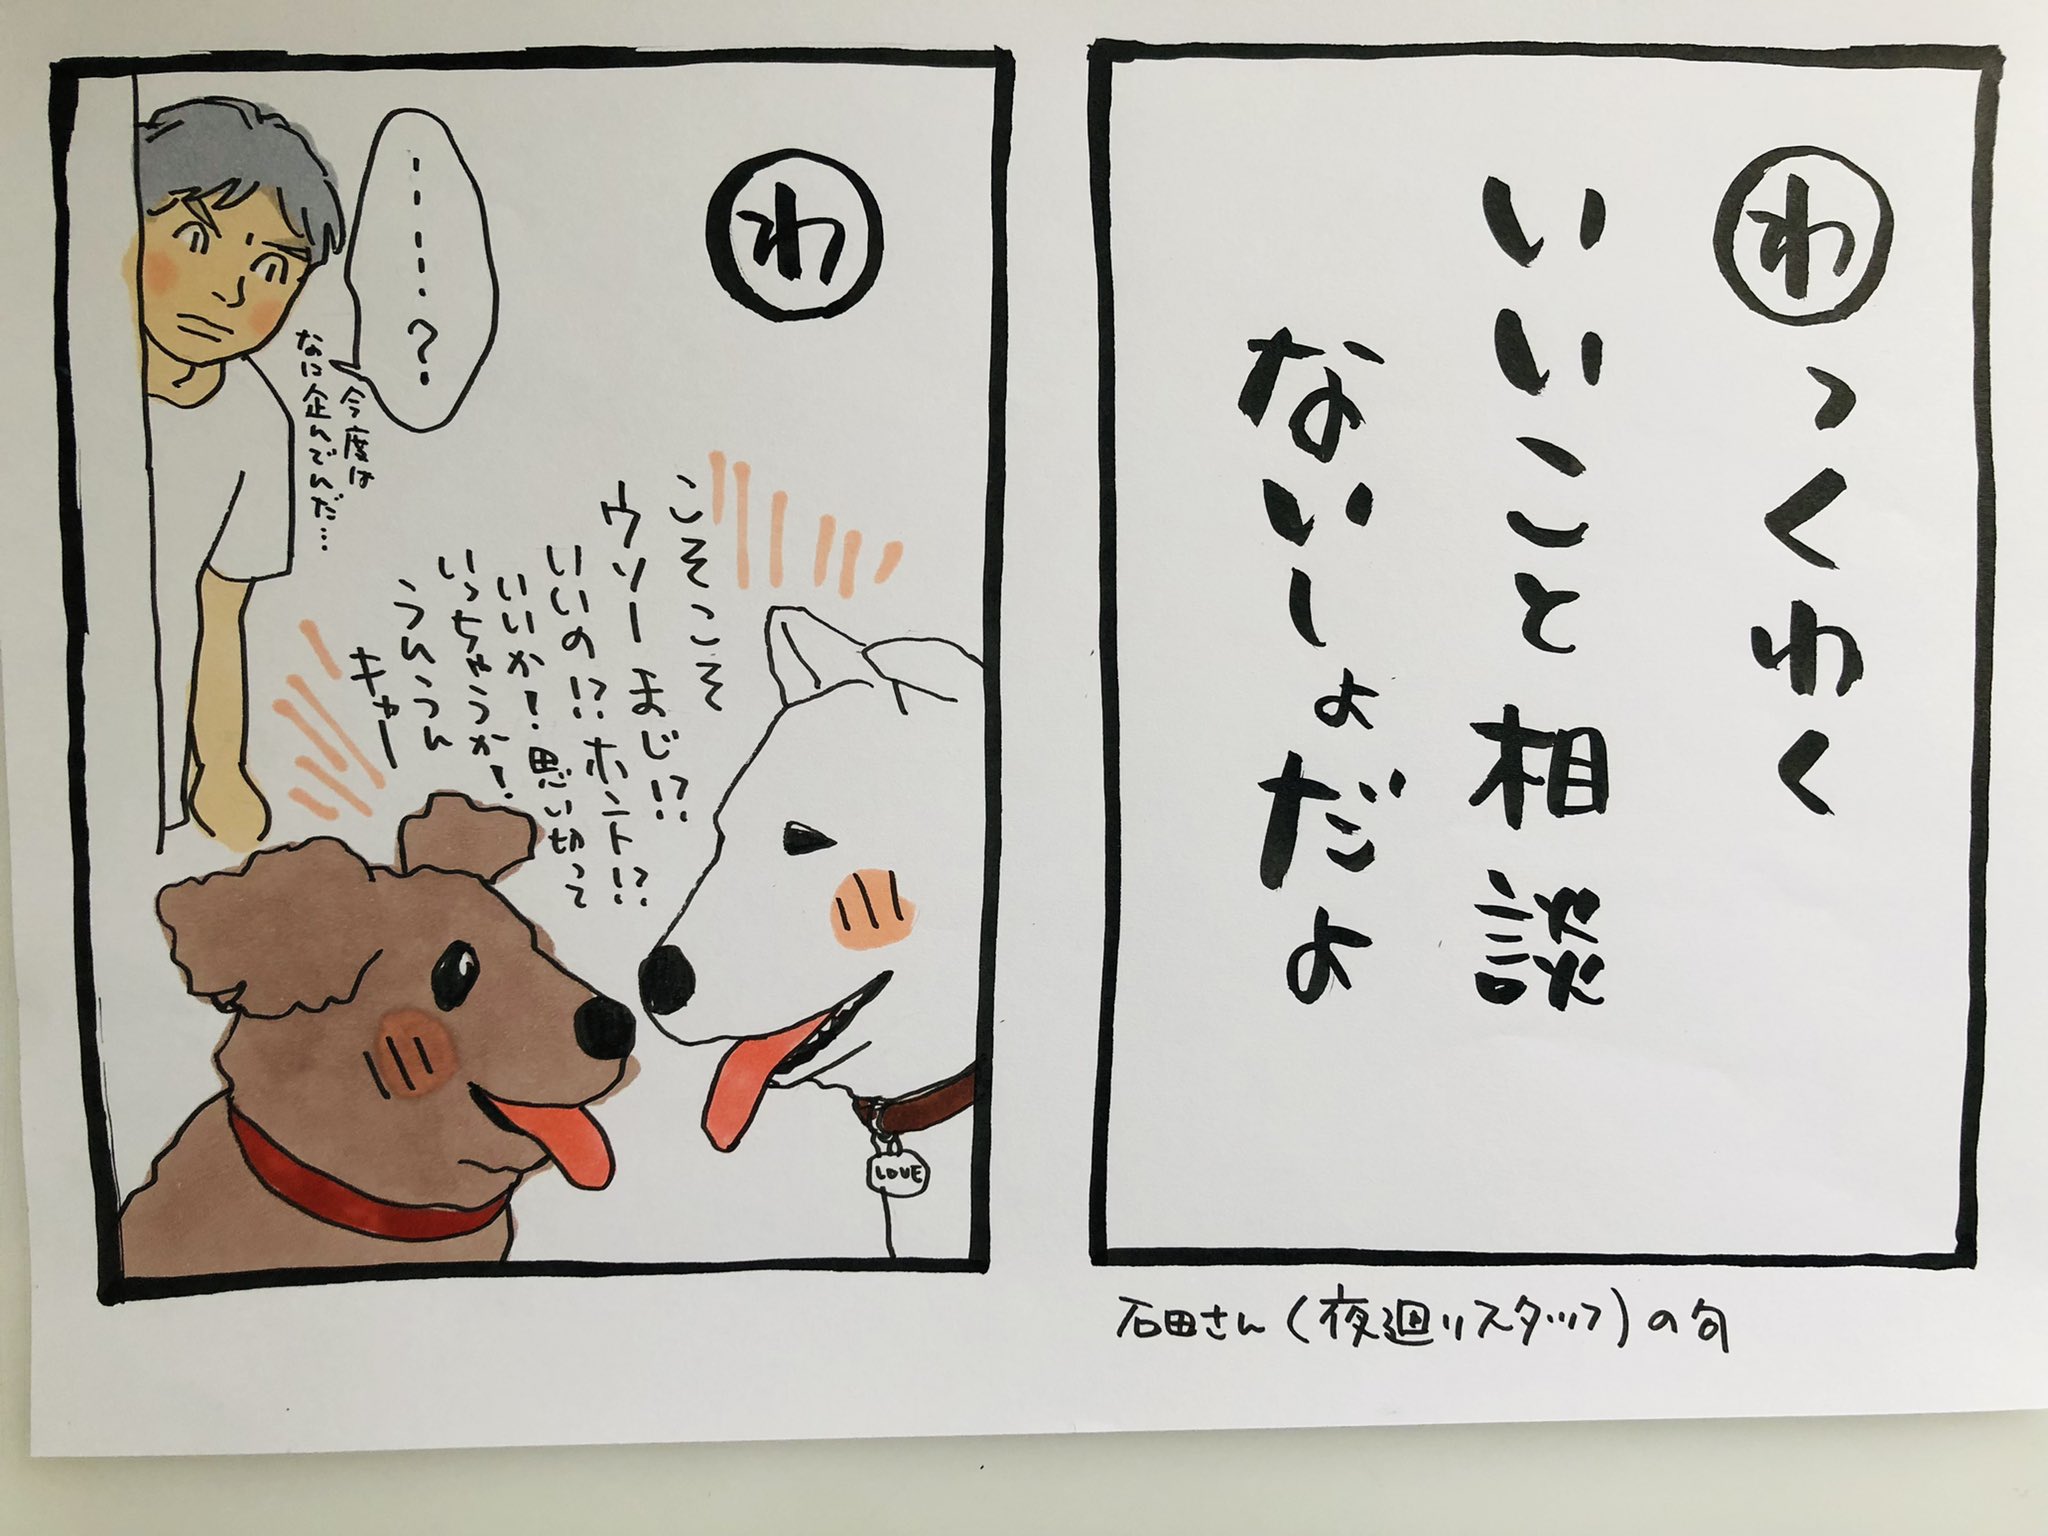 わっくわく
いいこと相談
ないしょだよ
石田さん(夜廻りスタッフ)の句
わ
こそこそこそ
ウソーまじ!?
いいの!?ホント!?
いいか!思い切って
いっちゃうか!
うんうん
キャー
……?
今度は
なに企んでんだ…
LOVE